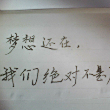 梦想还在,
我们绝对不怠